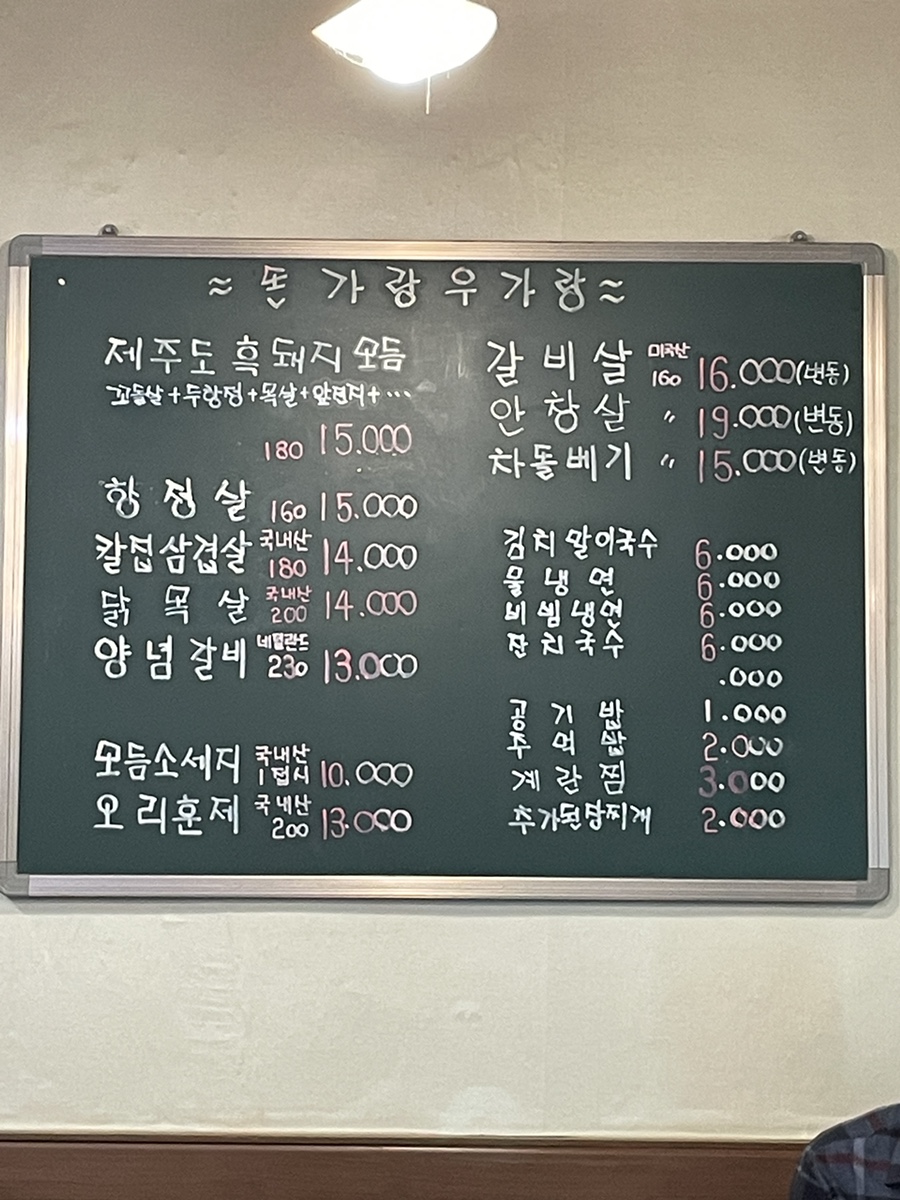 ≈ 돈 가랑 우 가랑 ≈
제주도 흑돼지 모듬
꼬들살+두항정+목살+앞전지+…
180 15.000
항정살 160 15.000
칼집삼겹살 국내산 180 14.000
닭목살 국내산 200 14.000
양념갈비 네덜란드 230 13.000
모듬소세지 국내산 1접시 10.000
오리훈제 국내산 200 13.000
갈비살 미국산 160 16.000(변동)
안창살 〃 19.000(변동)
차돌베기 〃 15.000(변동)
김치말이국수 6.000
물냉면 6.000
비빔냉면 6.000
잔치국수 6.000
.000
공기밥 1.000
주먹밥 2.000
계란찜 3.000
추가된장찌개 2.000